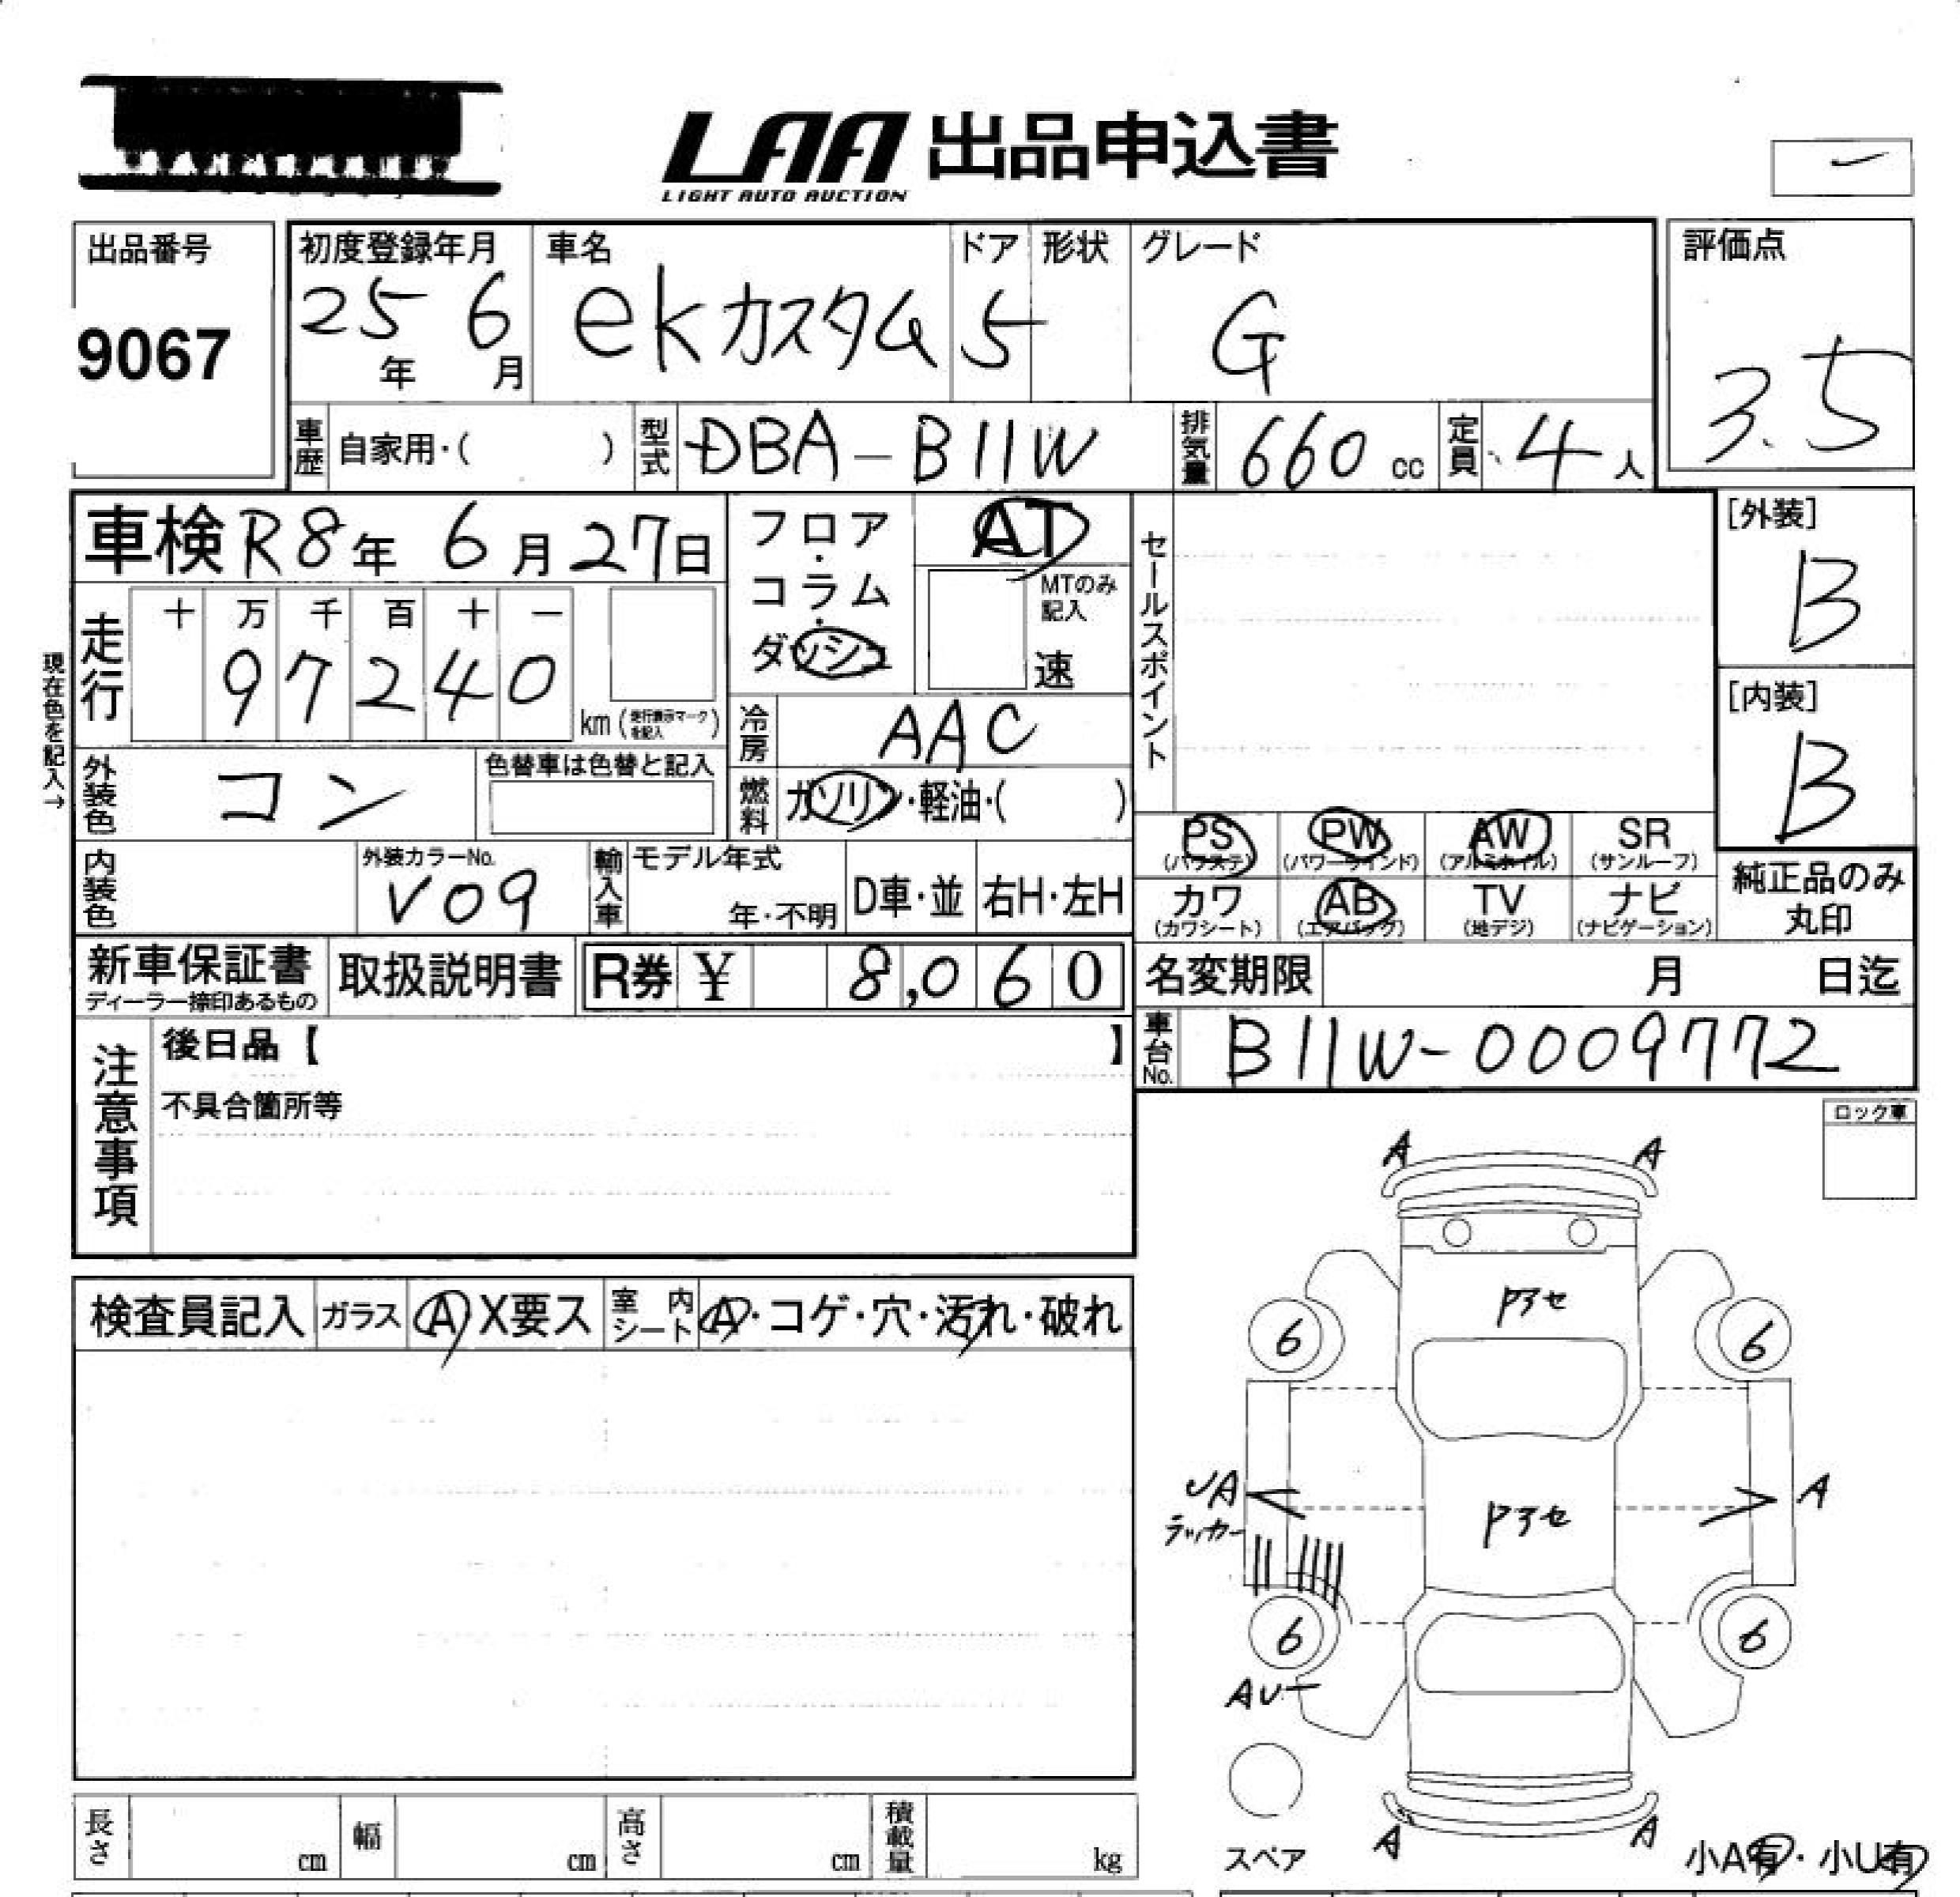 LAA 出品申込書
LIGHT AUTO AUCTION
出品番号
9067
初度登録年月
25年 6月
車名
ekカスタム
ドア
5
形状
グレード
G
評価点
3.5
車歴 自家用・( )
型式 DBA-B11W
排気量 660 cc
定員 4人
車検 R8年 6月 27日
フロア・コラム・ダッシュ
AT
MTのみ記入
速
セールスポイント
[外装]
B
[内装]
B
現在色を記入→
走行
十 万 千 百 十 一
9 7 2 4 0
km (走行表示マークを記入)
冷房 AAC
外装色 コン
色替車は色替と記入
燃料 ガソリン・軽油・( )
内装色
外装カラーNo.
V09
輸入車
モデル年式
年・不明
D車・並
右H・左H
PS (パワステ)
PW (パワーウインド)
AW (アルミホイル)
SR (サンルーフ)
カワ (カワシート)
AB (エアバック)
TV (地デジ)
ナビ (ナビゲーション)
純正品のみ丸印
新車保証書
ディーラー捺印あるもの
取扱説明書
R券 ¥ 8,060
名変期限 月 日迄
注意事項
後日品【 】
不具合箇所等
車台No. B11W-0009772
ロック車
検査員記入
ガラス A X要ス
室内シート A・コゲ・穴・汚れ・破れ
A A
6 6
A
ラッカー
A
6 6
A A
スペア
小A有・小U有
長さ cm
幅 cm
高さ cm
積載量 kg